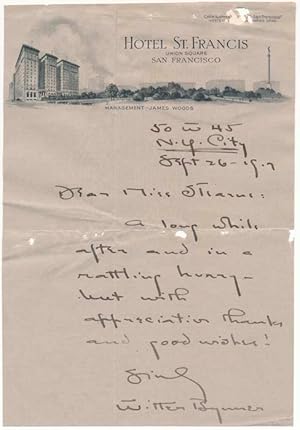 HOTEL ST. FRANCIS
UNION SQUARE
SAN FRANCISCO
MANAGEMENT-JAMES WOODS
50 W 45
N.Y. City
Sept 26-1917
Dear Miss Stearns:
A long while
after and in a
rattling hurry-
but with
appreciative thanks
and good wishes!
Sincly
Witter Bynner